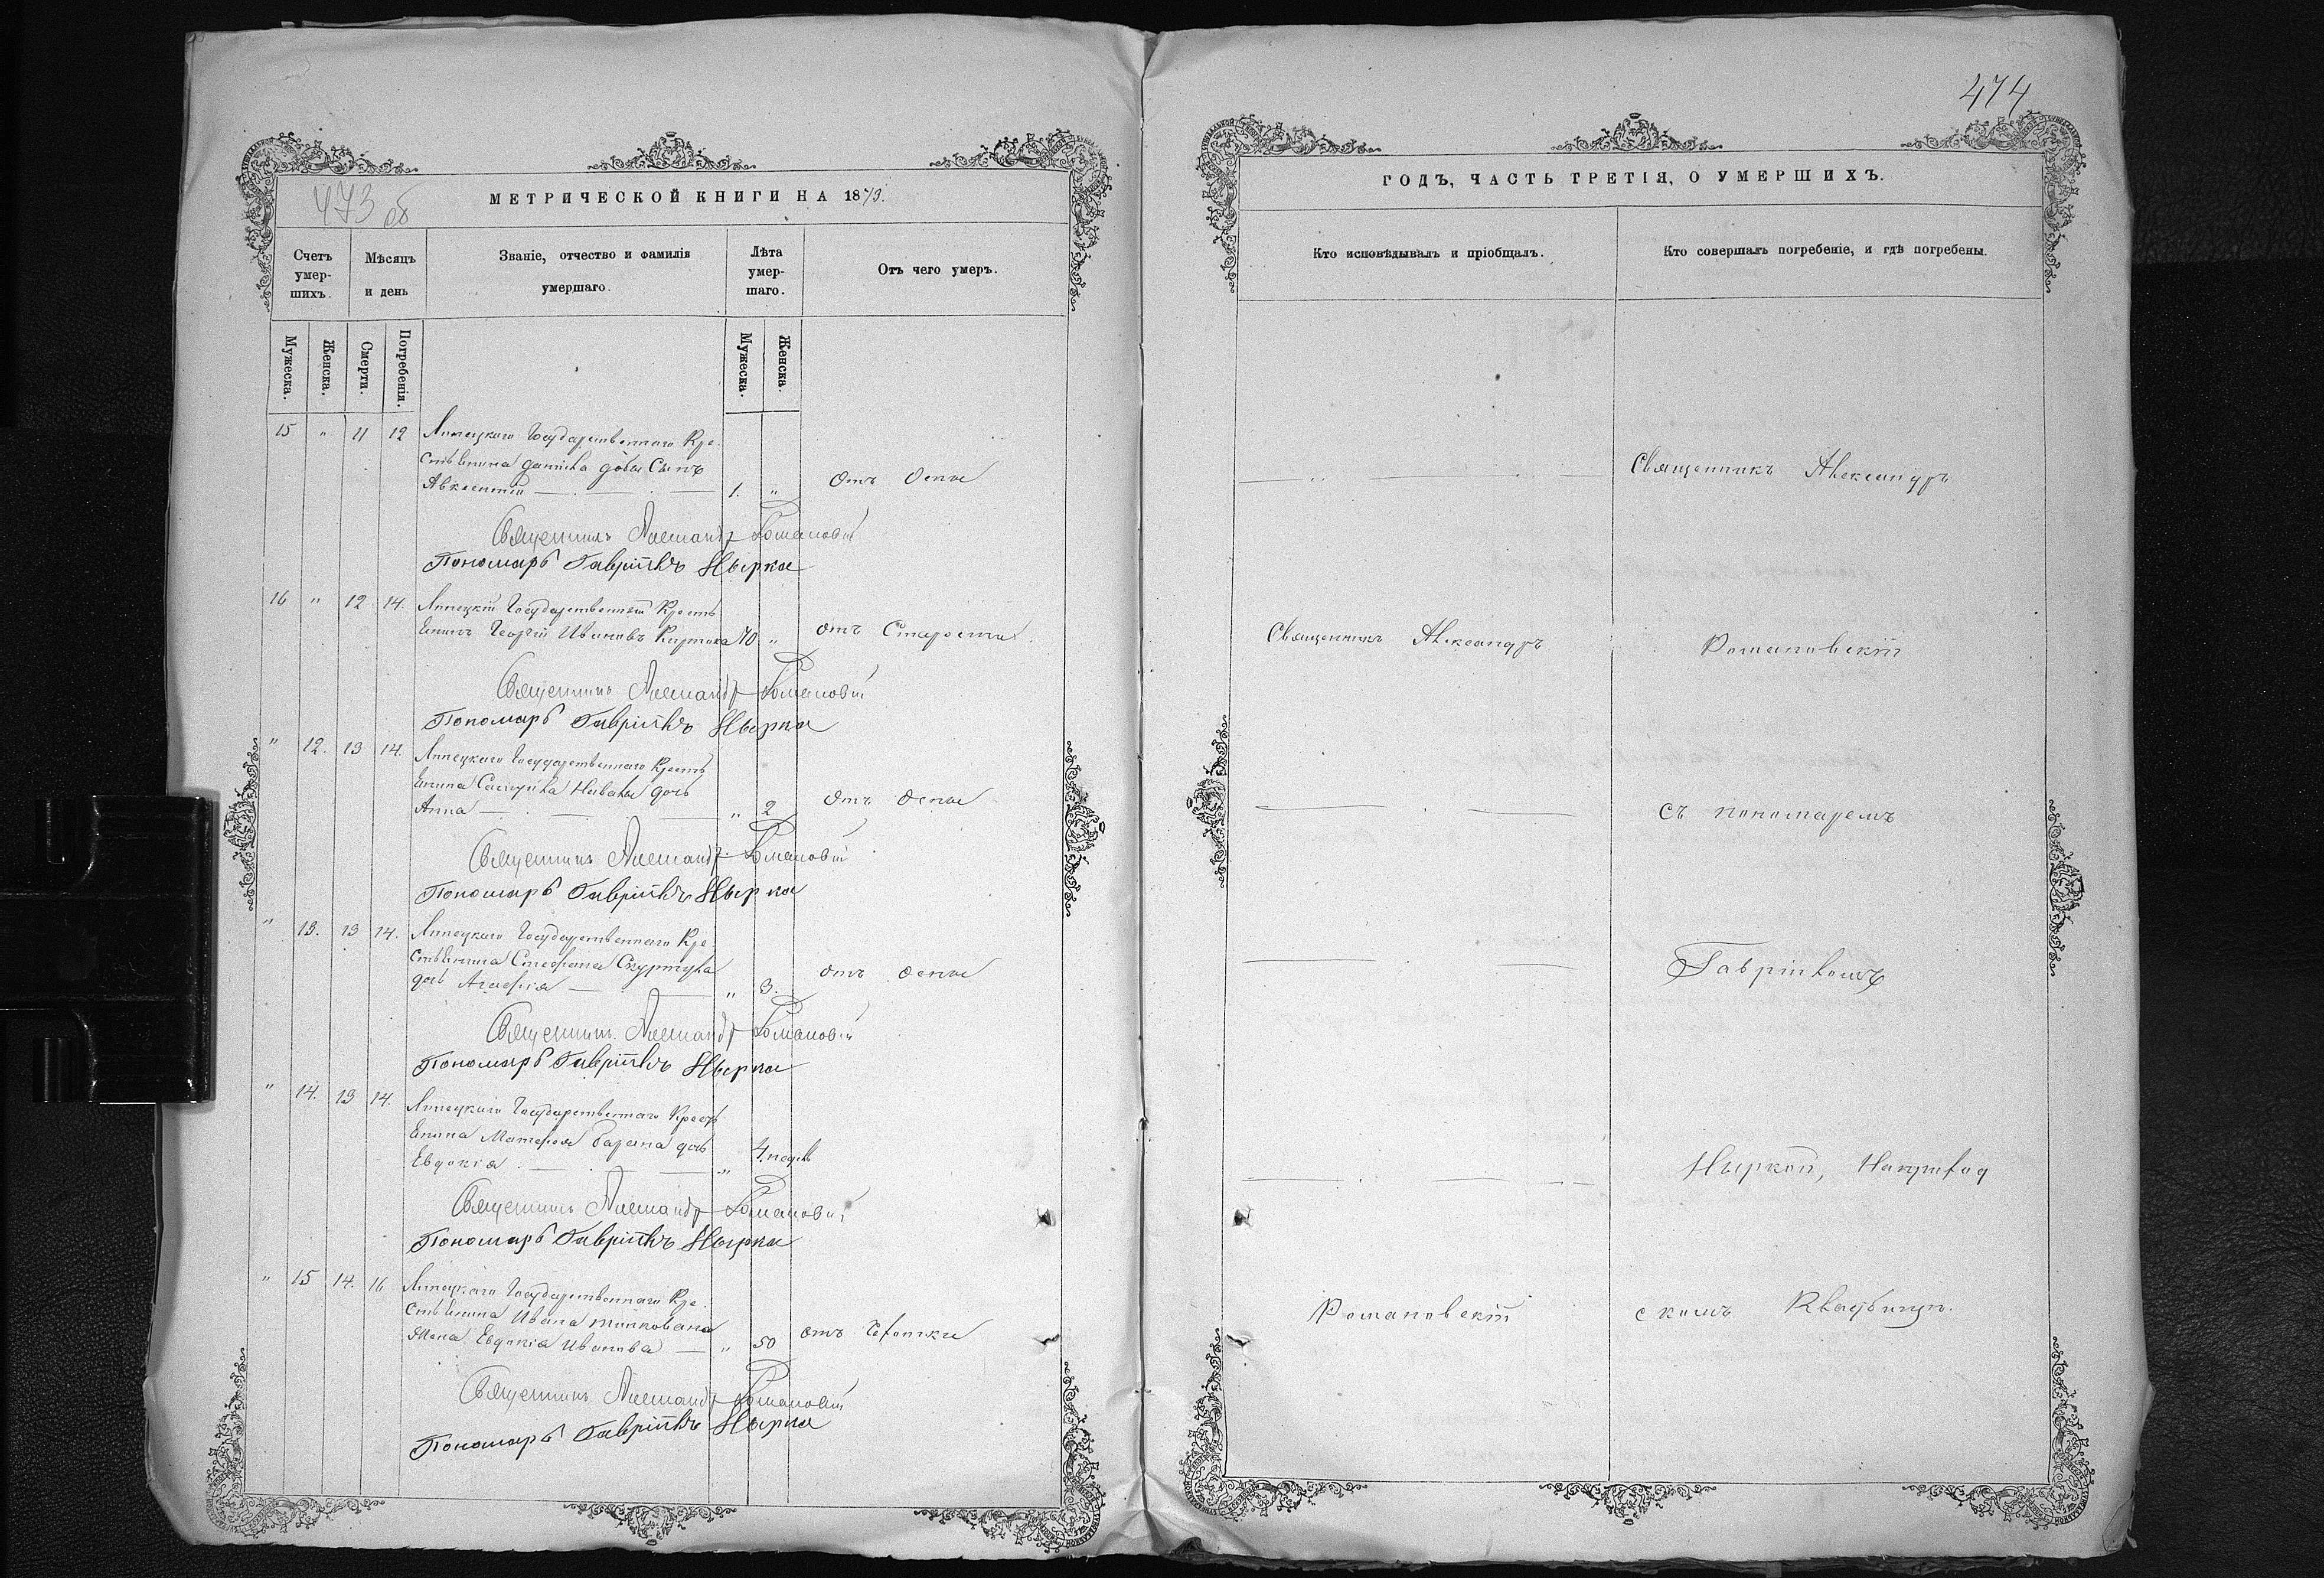 473 об
МЕТРИЧЕСКОЙ КНИГИ НА 1873.
Счетъ умер-шихъ.
Мѣсяцъ и день
Званіе, отчество и фамилія умершаго.
Лѣта умер-шаго.
Отъ чего умеръ.
Мужеска.
Женска.
Смерти.
Погребенія.
Мужеска.
Женска.
15 " 11 12 Липецкаго Государственнаго Кре
стьянина Даніила сынъ
Авксентій 1. " Отъ Оспы
Священникъ Александръ Романовскій
Пономарь Гавріилъ Нырка
16 " 12 14. Липецкій Государственный Кресть
янинъ Георгій Ивановъ 70 " отъ Старости
Священникъ Александръ Романовскій
Пономарь Гавріилъ Нырка
" 12. 13 14. Липецкаго Государственнаго Кресть
янина Самуила дочь
Анна " 2 Отъ Оспы
Священникъ Александръ Романовскій
Пономарь Гавріилъ Нырка
" 13. 13 14. Липецкаго Государственнаго Кре
стьянина Стефана Скуртула
дочь Агафія " 3. Отъ Оспы
Священникъ Александръ Романовскій
Пономарь Гавріилъ Нырка
" 14. 13 14. Липецкаго Государственнаго Кресть
янина Матфея Барана дочь
Евдокія " 4. недѣль
Священникъ Александръ Романовскій
Пономарь Гавріилъ Нырка
" 15 14. 16 Липецкаго Государственнаго Кре
стьянина Ивана
Жена Евдокія Иванова " 50 отъ Чахотки
Священникъ Александръ Романовскій
Пономарь Гавріилъ Нырка
474
ГОДЪ, ЧАСТЬ ТРЕТІЯ, О УМЕРШИХЪ.
Кто исповѣдывалъ и пріобщалъ.
Кто совершалъ погребеніе, и гдѣ погребены.
Священникъ Александръ
Священникъ Александръ
Романовскій
съ пономаремъ
Гавріиломъ
Ныркой,
Романовскій
скомъ Кладбищѣ.